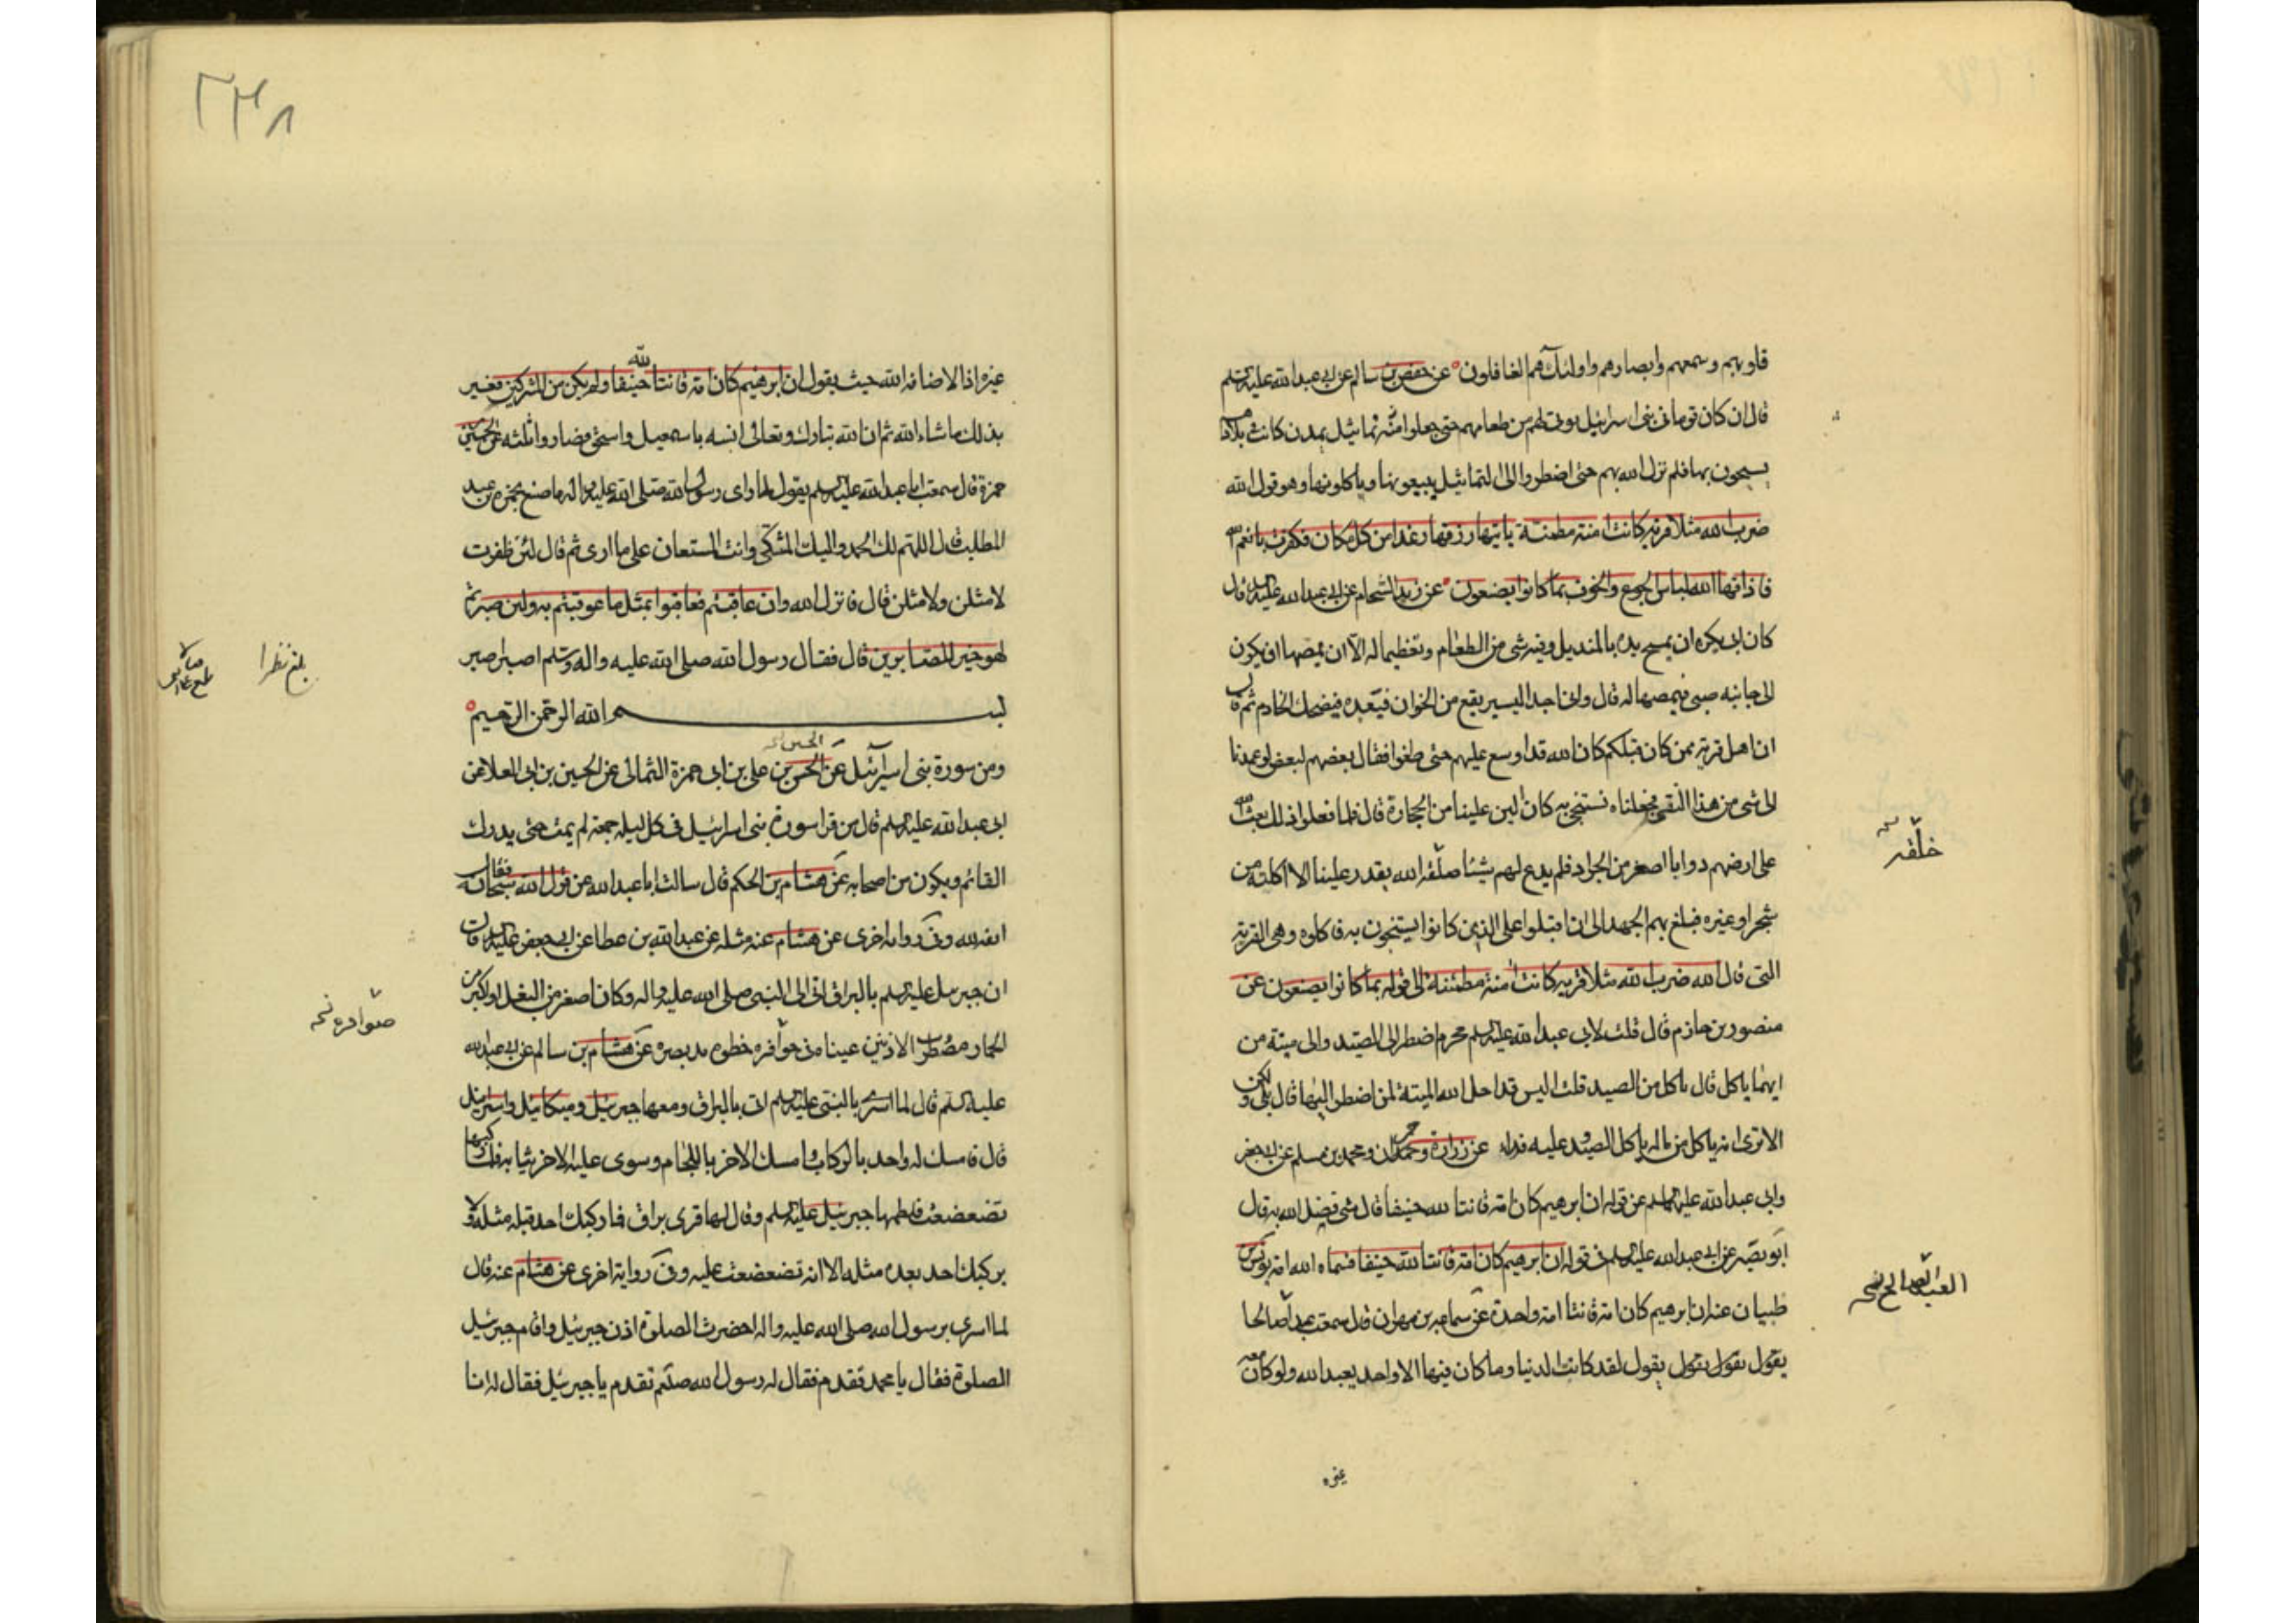 قلوبهم وسمعهم وابصارهم واولئك هم الغافلون عن حفص بن سالم عن ابى عبد الله عليه السلم
قال ان كان قوما فى بنى اسرائيل يوتى لهم من طعامهم حتى جعلوا منه تماثيل بمدن كانت فى بلادهم
يستنجون بها فلم يزل الله بهم حتى اضطروا الى التماثيل يبيعونها وياكلونها وهو قول الله
ضرب الله مثلا قرية كانت امنة مطمئنة ياتيها رزقها رغدا من كل مكان فكفرت بانعم الله
فاذاقها الله لباس الجوع والخوف بما كانوا يصنعون عن زيد الشحام عن ابى عبد الله عليه السلم قال
كان ابى يكره ان يمسح يده بالمنديل وفيه شى من الطعام وتعظيما له الا ان يمصها او يكون
الى جانبه صبى فيمصها له قال وانى اجد اليسير يقع من الخوان فيضحك الخادم ثم قال
ان اهل قرية ممن كان قبلكم كان الله قد اوسع عليهم حتى طغوا فقال بعضهم لبعض لو عمدنا
الى شى من هذا النقى فجعلناه نستنجى به كان الين علينا من الحجارة قال فلما فعلوا ذلك بعث الله
على ارضهم دوابا اصغر من الجراد فلم يدع لهم شيئا خلقه الله يقدر عليه الا اكلته من
شجر او غيره فبلغ بهم الجهد الى ان اقبلوا على الذين كانوا يستنجون به فاكلوه وهى القرية
التى قال الله ضرب الله مثلا قرية كانت امنة مطمئنة الى قوله بما كانوا يصنعون عن
منصور بن حازم قال قلت لابى عبد الله عليه السلم محرم اضطر الى الصيد والى ميتة من
ايهما ياكل قال ياكل من الصيد قلت اليس قد احل الله الميتة لمن اضطر اليها قال بلى ولكن
الا ترى انه ياكل من ماله ياكل الصيد وعليه فداء عن زرارة وحمران ومحمد بن مسلم عن ابى جعفر
وابى عبد الله عليهما السلم عن قوله ان ابرهيم كان امة قانتا لله حنيفا قال شى فضل الله به قال
ابو بصير عن ابى عبد الله عليه السلم فى قوله ان ابرهيم كان امة قانتا لله حنيفا فسماه الله امة يونس
ظبيان عنه ان ابرهيم كان امة قانتا امة واحدة عن سماعة بن مهران قال سمعت عبدا صالحا
يقول يقول يقول يقول لقد كانت الدنيا وما كان فيها الا واحد يعبد الله ولو كان معه
غيره
خلقه نسخه
العبد الصالح نسخه
٢٣٨
غيره اذا لاضافه الله حيث يقول ان ابرهيم كان امة قانتا لله حنيفا ولم يكن من المشركين فغبر
بذلك ما شاء الله ثم ان الله تبارك وتعالى انسه باسمعيل واسحق فصاروا ثلثه عن الحسين
حمزة قال سمعت ابا عبد الله عليه السلم يقول لما راى رسول الله صلى الله عليه واله ما صنع بحمزة بن عبد
المطلب قال اللهم لك الحمد واليك المشتكى وانت المستعان على ما ارى ثم قال لئن ظفرت
لامثلن ولامثلن قال فانزل الله وان عاقبتم فعاقبوا بمثل ما عوقبتم به ولئن صبرتم
لهو خير للصابرين قال فقال رسول الله صلى الله عليه واله وسلم اصبر اصبر
بسم الله الرحمن الرحيم
ومن سورة بنى اسرآئيل عن الحسن بن على بن ابى حمزة الثمالى عن الحسين بن ابى العلا عن
ابى عبد الله عليه السلم قال من قرا سورة بنى اسرائيل فى كل ليلة جمعة لم يمت حتى يدرك
القائم ويكون من اصحابه عن هشام بن الحكم قال سالت ابا عبد الله عن قول الله سبحان فقال
انفه لله وفى رواية اخرى عن هشام عنه مثله عن عبد الله بن عطا عن ابى جعفر عليه السلم قال
ان جبرئيل عليه السلم بالبراق اتى الى النبى صلى الله عليه واله وكان اصغر من البغل واكبر من
الحمار مضطرب الاذنين عيناه فى حوافره خطوه مد بصره عن هشام بن سالم عن ابى عبد الله
عليه السلم قال لما اسرى بالنبى عليه السلم اتى بالبراق ومعها جبرئيل وميكائيل واسرافيل
قال فامسك له واحد بالركاب وامسك الاخر باللجام وسوى عليه الاخر ثيابه فلما ركبها
تضعضعت فلطمها جبرئيل عليه السلم وقال لها قرى براق فما ركبك احد قبله مثله ولا
يركبك احد بعده مثله الا انه تضعضعت عليه وفى رواية اخرى عن هشام عنه قال
لما اسرى برسول الله صلى الله عليه واله احضرت الصلوة اذن جبرئيل واقام جبرئيل
الصلوة فقال يا محمد تقدم فقال له رسول الله صلعم تقدم يا جبرئيل فقال له انا
بلغ نظرا
حوافره نسخه